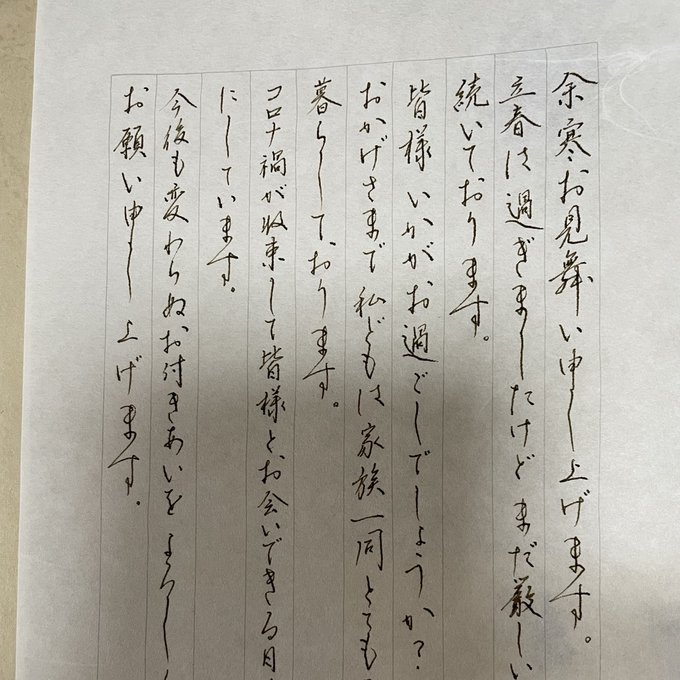 余寒お見舞い申し上げます。
立春は過ぎましたけど まだ厳しい
続いております。
皆様 いかがお過ごしでしょうか?
おかげさまで 私どもは 家族一同 とても
暮らしております。
コロナ禍が収束して皆様とお会いできる日
にしています。
今後も変わらぬお付きあいを よろし
お願い申し上げます。